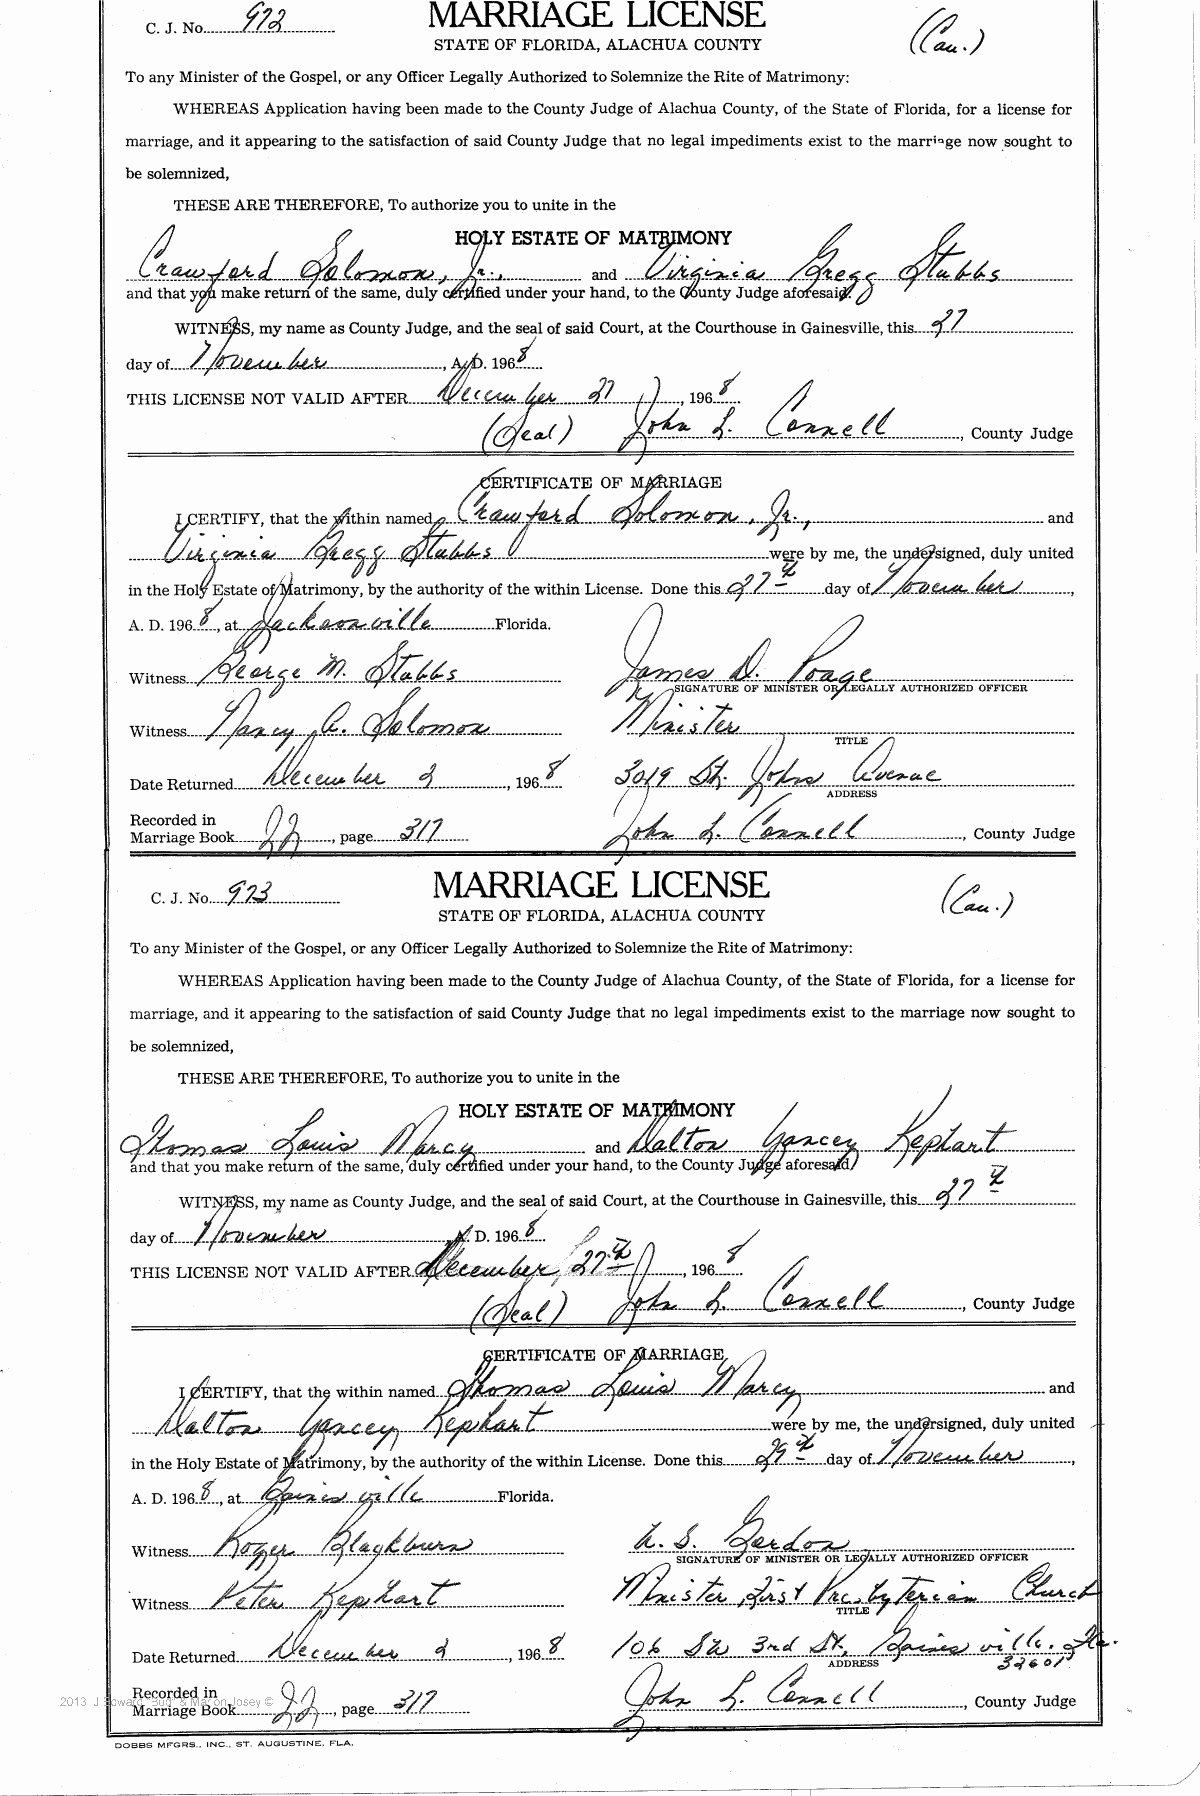 C. J. No. 972
MARRIAGE LICENSE
(Cau.)
STATE OF FLORIDA, ALACHUA COUNTY
To any Minister of the Gospel, or any Officer Legally Authorized to Solemnize the Rite of Matrimony:
WHEREAS Application having been made to the County Judge of Alachua County, of the State of Florida, for a license for
marriage, and it appearing to the satisfaction of said County Judge that no legal impediments exist to the marriage now sought to
be solemnized,
THESE ARE THEREFORE, To authorize you to unite in the
HOLY ESTATE OF MATRIMONY
Crawford Solomon, Jr., and Virginia Gregg Stubbs
and that you make return of the same, duly certified under your hand, to the County Judge aforesaid.
WITNESS, my name as County Judge, and the seal of said Court, at the Courthouse in Gainesville, this 27
day of November, A. D. 1968
THIS LICENSE NOT VALID AFTER December 27, 1968
(Seal) John L. Connell, County Judge
CERTIFICATE OF MARRIAGE
I CERTIFY, that the within named Crawford Solomon, Jr., and
Virginia Gregg Stubbs were by me, the undersigned, duly united
in the Holy Estate of Matrimony, by the authority of the within License. Done this 27th day of November,
A. D. 1968, at Jacksonville Florida.
Witness George M. Stubbs James D. Poage
SIGNATURE OF MINISTER OR LEGALLY AUTHORIZED OFFICER
Witness Nancy A. Solomon Minister
TITLE
Date Returned December 2, 1968 3019 St. Johns Avenue
ADDRESS
Recorded in
Marriage Book JJ, page 317 John L. Connell, County Judge
C. J. No. 973
MARRIAGE LICENSE
(Cau.)
STATE OF FLORIDA, ALACHUA COUNTY
To any Minister of the Gospel, or any Officer Legally Authorized to Solemnize the Rite of Matrimony:
WHEREAS Application having been made to the County Judge of Alachua County, of the State of Florida, for a license for
marriage, and it appearing to the satisfaction of said County Judge that no legal impediments exist to the marriage now sought to
be solemnized,
THESE ARE THEREFORE, To authorize you to unite in the
HOLY ESTATE OF MATRIMONY
Thomas Louis Marcy and Dalton Yancey Kephart
and that you make return of the same, duly certified under your hand, to the County Judge aforesaid.
WITNESS, my name as County Judge, and the seal of said Court, at the Courthouse in Gainesville, this 27th
day of November A. D. 1968
THIS LICENSE NOT VALID AFTER December 27th, 1968
(Seal) John L. Connell, County Judge
CERTIFICATE OF MARRIAGE
I CERTIFY, that the within named Thomas Louis Marcy and
Dalton Yancey Kephart were by me, the undersigned, duly united
in the Holy Estate of Matrimony, by the authority of the within License. Done this 29th day of November,
A. D. 1968, at Gainesville Florida.
Witness Roger Blackburn U. S. Gordon
SIGNATURE OF MINISTER OR LEGALLY AUTHORIZED OFFICER
Witness Peter Kephart Minister First Presbyterian Church
TITLE
Date Returned December 2, 1968 106 SW 3rd St., Gainesville, Fla.
ADDRESS 32601
Recorded in
Marriage Book JJ, page 317 John L. Connell, County Judge
2013 J Edward "Bud" & Marion Josey ©
DOBBS MFGRS., INC., ST. AUGUSTINE, FLA.